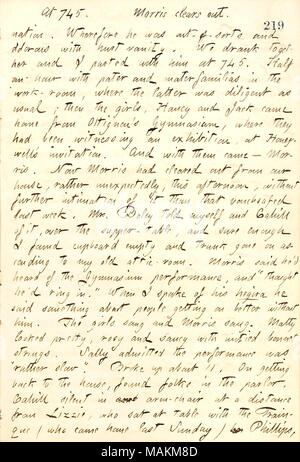 At 745. Morris clears out.
219
nation. Wherefore he was out of sorts and
odorous with most vanity. We drank toget-
her and I parted with him at 745. Half
an hour with pater and materfamilias in the
work-room, where the latter was diligent as
usual; then the girls, Haney and Jack came
home from Ottignon's Gymnasium, where they
had been witnessing an exhibition, at Honey-
well's invitation. And with them came — Mor-
ris. Now Morris had cleared out from our
house, rather unexpectedly, this afternoon, without
further intimation of it than that vouchsafed
last week. Mrs. Boley told myself and Cahill
of it, over the supper-table, and sure enough
I found cupboard empty and trunk gone on as-
cending to my old attic-room. Morris said he'd
heard of the Gymnasium performance, and "thought
he'd ring in." When I spoke of his hegira he
said something about people getting on better without
him. The girls sang and Morris sang. Matty
looked pretty, rosy and saucy with untied bonnet
strings. Sally admitted the performance was
"rather slow". Broke up about 11. On getting
back to the house, found folks in the parlor.
Cahill silent in arm-chair at a distance
from Lizzie, who sat at table with the Train-
que (who came home last Sunday) Phillips,
alamy
Image ID: MAKM8D
www.alamy.com